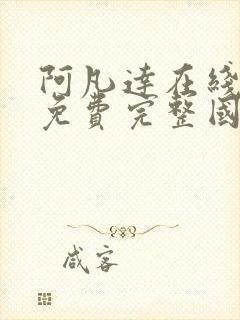 阿凡達在綫
免費完整國
咸客